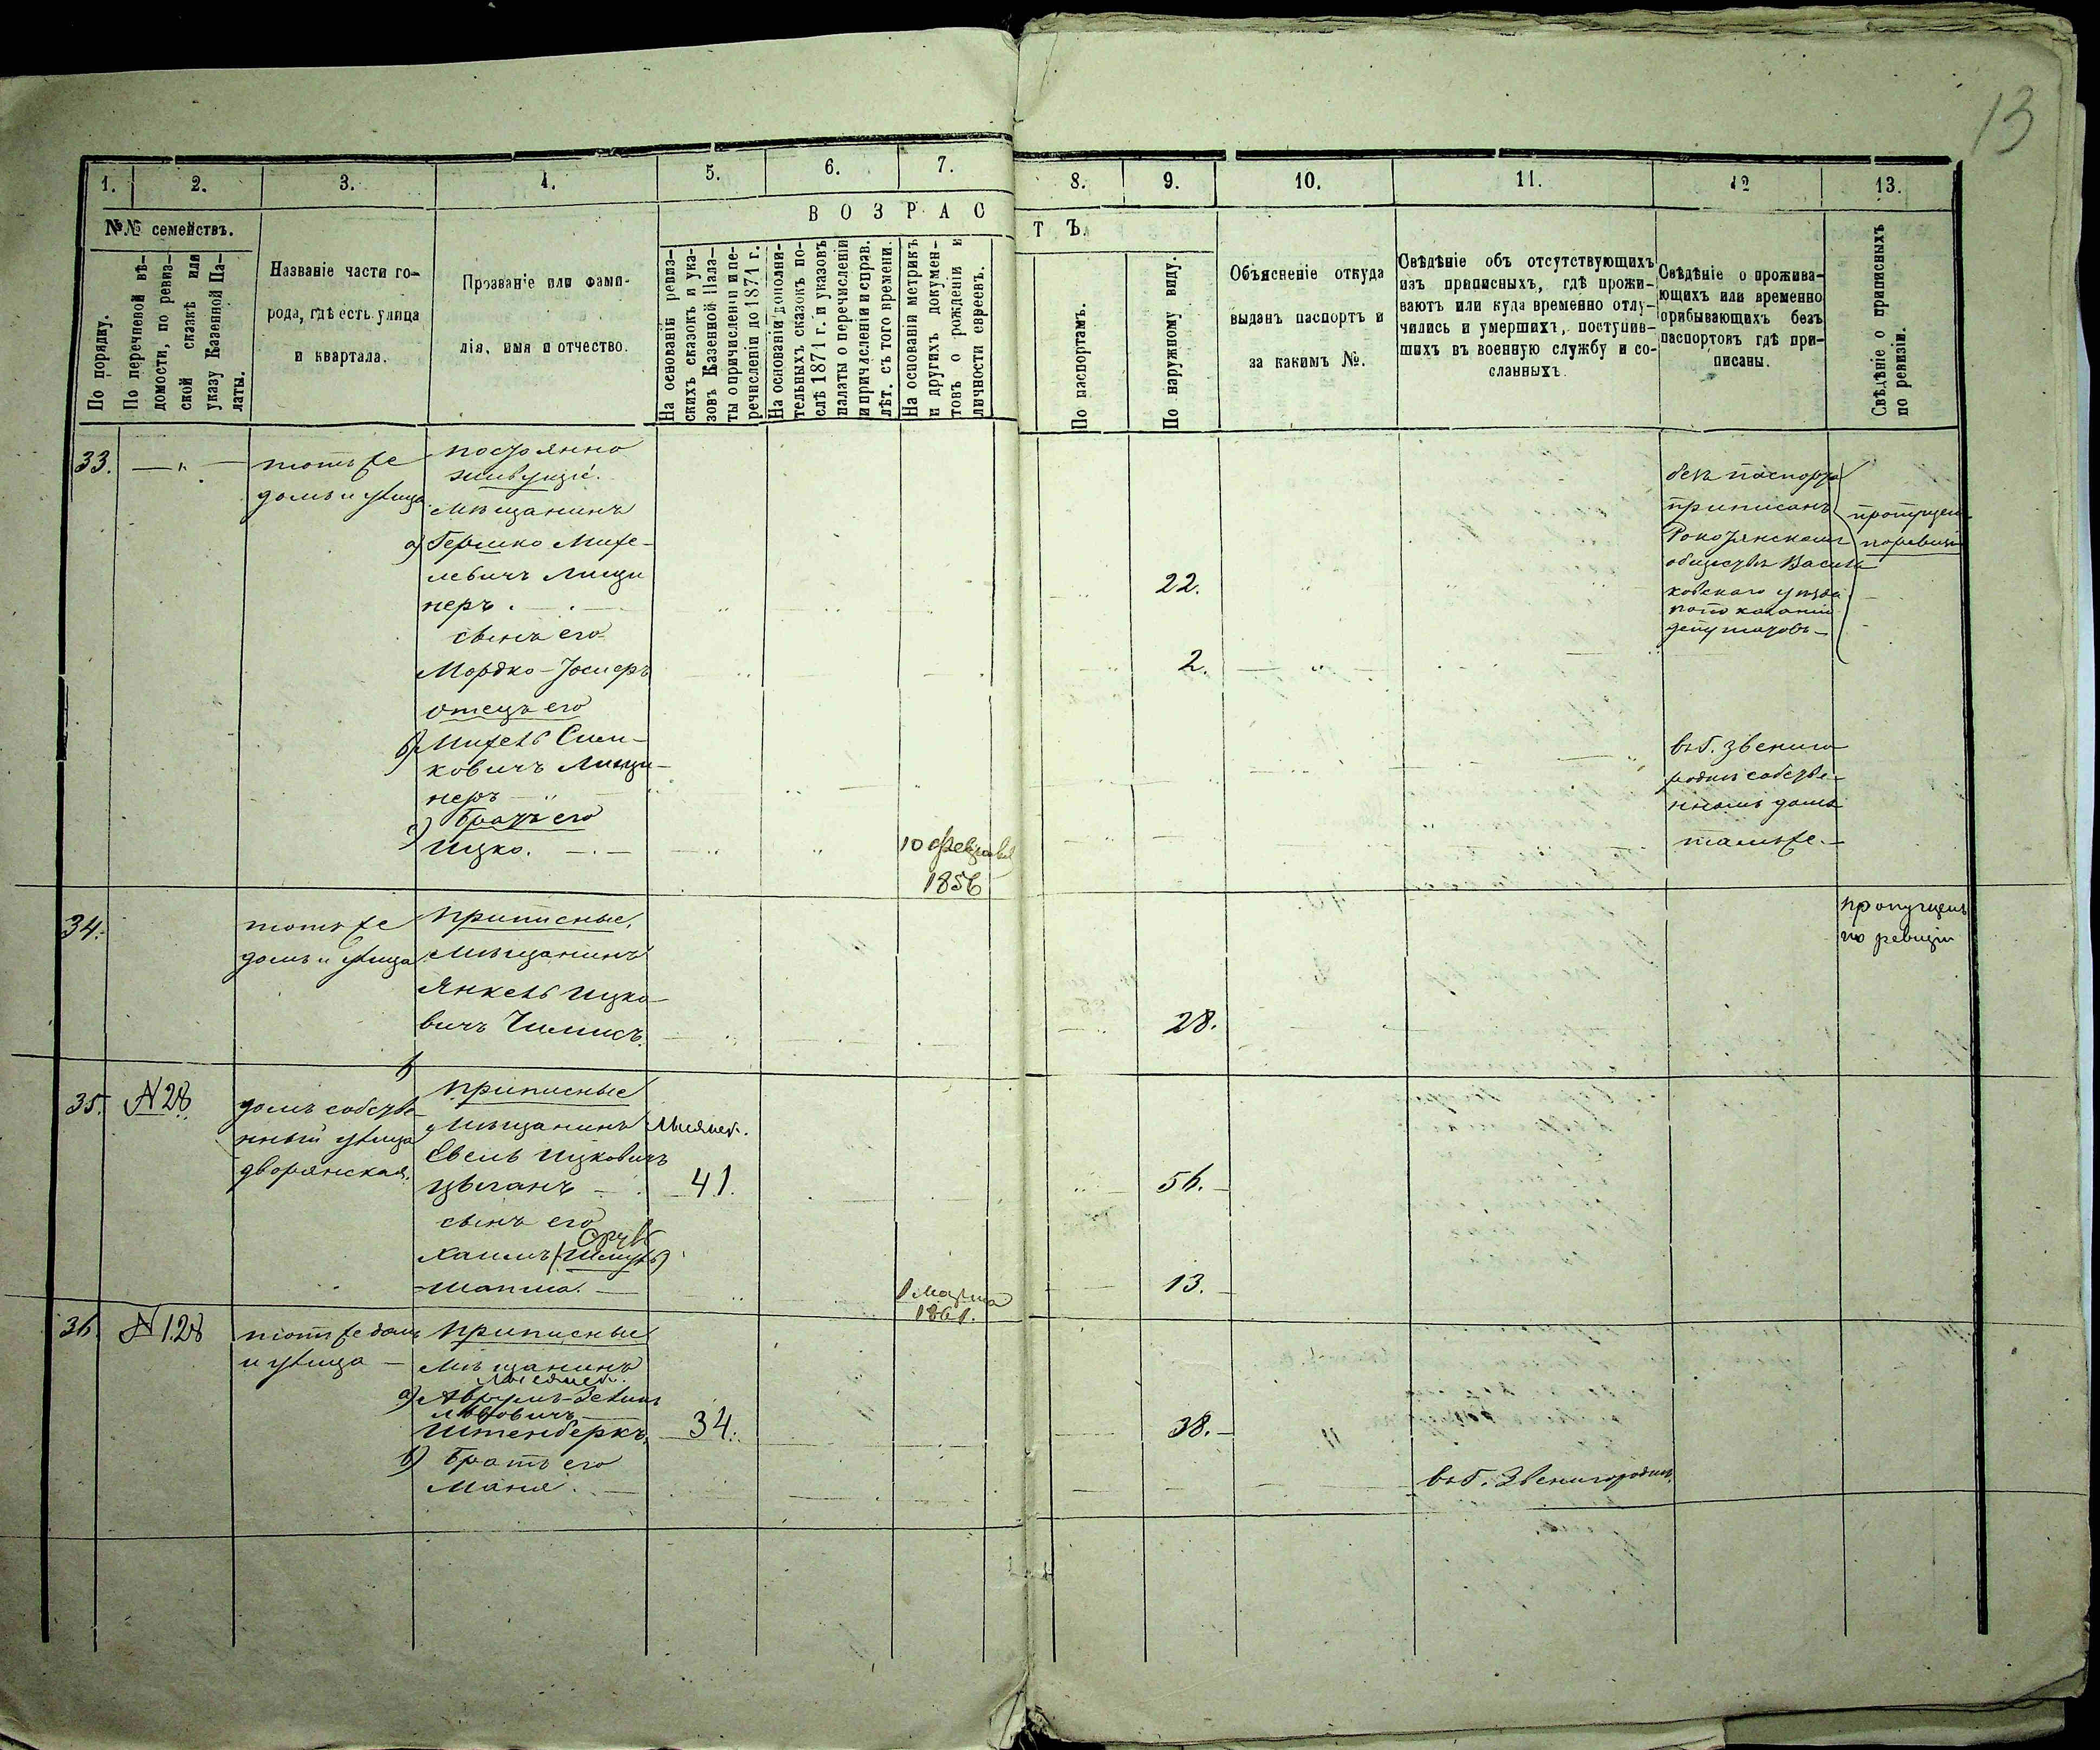 13
1. 2. 3. 4. 5. 6. 7. 8. 9. 10. 11. 12 13.
№№ семействъ.
По порядку.
По перечневой вѣ-
домости, по ревиз-
ской сказкѣ или
указу Казенной Па-
латы.
Названіе части го-
рода, гдѣ есть улица
и квартала.
Прозваніе или фами-
лія, имя и отчество.
ВОЗРАС
ТЪ.
На основаніи ревиз-
скихъ сказокъ и ука-
зовъ Казенной Пала-
ты о причисленіи и пе-
речисленіи до 1871 г.
На основаніи дополни-
тельныхъ сказокъ по-
слѣ 1871 г. и указовъ
палаты о перечисленіи
и причисленіи и справ.
лѣт. съ того времени.
На основаніи метрикъ
и другихъ докумен-
товъ о рожденіи и
личности евреевъ.
По паспортамъ.
По наружному виду.
Объясненіе откуда
выданъ паспортъ и
за какимъ №.
Свѣдѣніе объ отсутствующихъ
изъ приписныхъ, гдѣ прожи-
ваютъ или куда временно отлу-
чились и умершихъ, поступив-
шихъ въ военную службу и со-
сланныхъ.
Свѣдѣніе о прожива-
ющихъ или временно
прибывающихъ безъ
паспортовъ гдѣ при-
писаны.
Свѣдѣніе о приписныхъ
по ревизіи.
33.
тотъ же
домъ и улица
постоянно
живущіе.
Мѣщанинъ
а) Гершко Михе-
левичъ Лищи
неръ
22.
сынъ его
Мордко-Іосиеръ
2.
отецъ его
б) Михель Сим-
ковичъ Лищи-
неръ
с) братъ его
Ицко.
10 февраля
1856
безъ паспорта
приписанъ
обществѣ Василь
ковскаго уѣзда
по показанію
депутатовъ
пропущен
по ревизіи
въ г. Звениго
родкѣ собстве
нномъ домѣ
тамъ же.
34.
тотъ же
домъ и улица
приписные,
Мѣщанинъ
Янкель Ицко-
вичъ Чимисъ.
28.
пропущенъ
по ревизіи
35. № 28
домъ собстве
нный улица
дворянская.
приписные
Мѣщанинъ
Евель Ицковичъ
Цыганъ
41.
56.
сынъ его
Хаимъ (Шмуль)
Шапша.
1 Марта
1861.
13.
36. № 128
тотъ же домъ
и улица
приписные
Мѣщанинъ
а) Аврумъ-Зельмъ
Штенберкъ.
34.
38.
б) братъ его
Маня.
въ г. Звенигородкѣ,